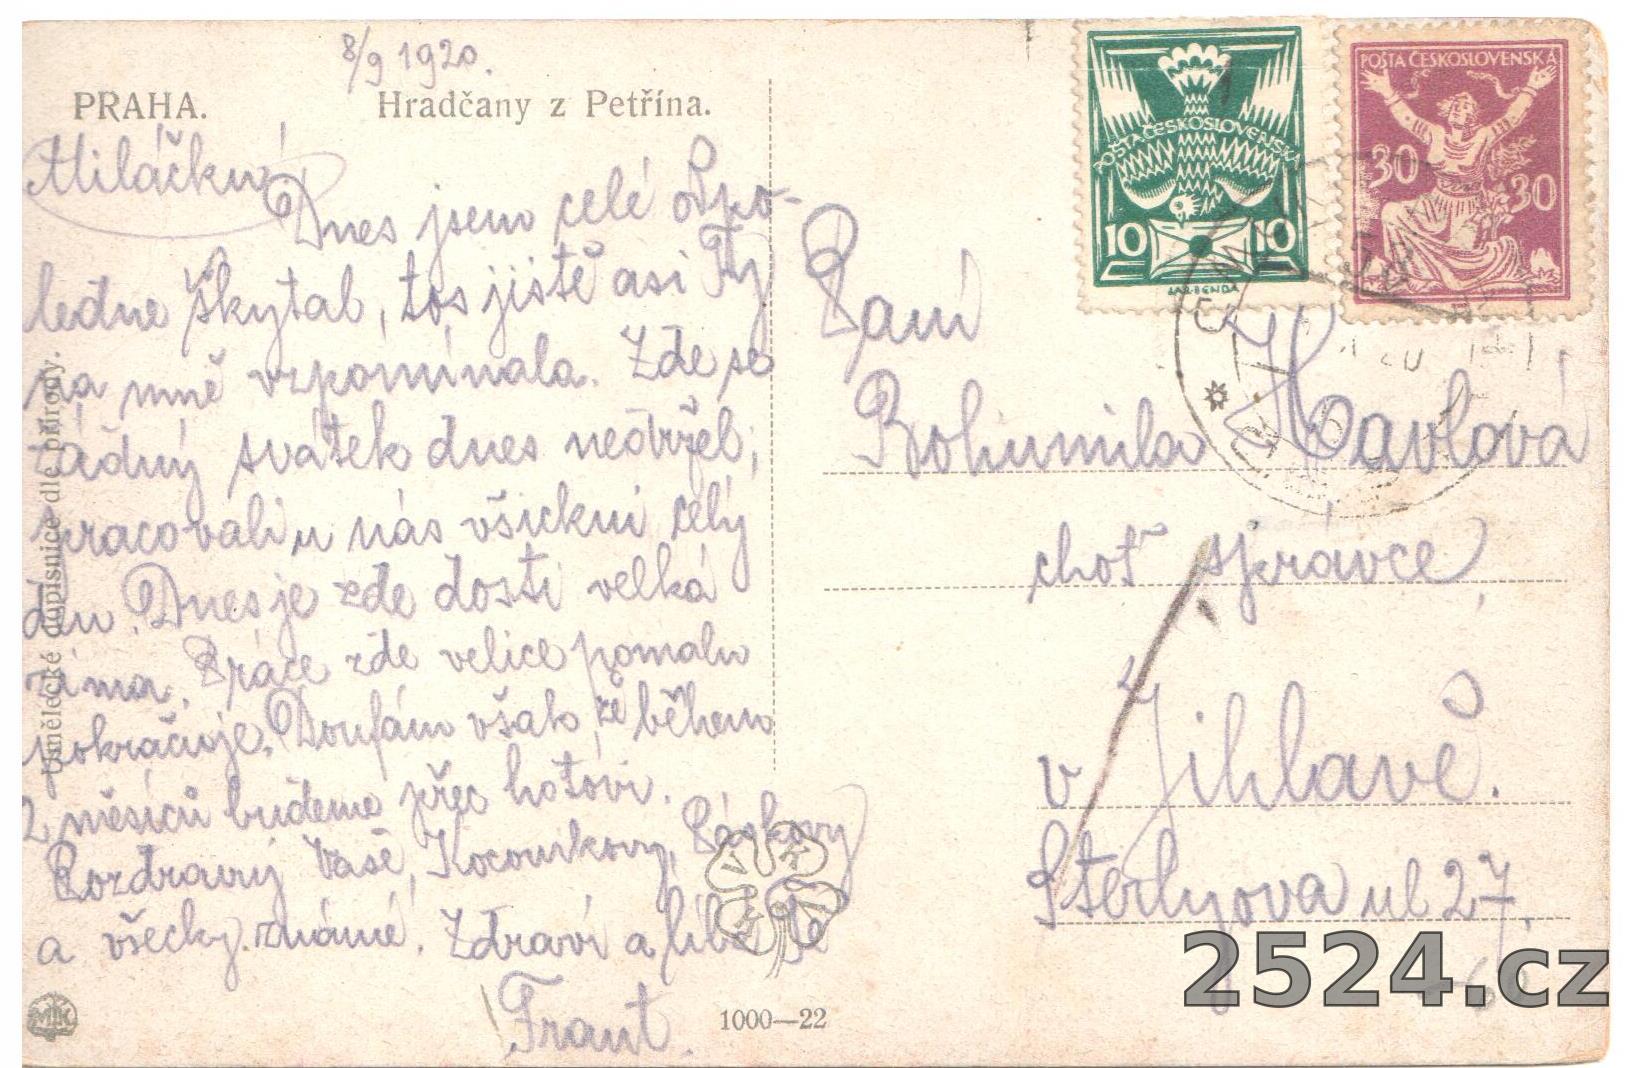 8/9 1920.
PRAHA. Hradčany z Petřína.
Miláčku!
Dnes jsem celé odpo-
ledne škytal, tos jistě asi Ty
na mně vzpomínala. Zde se
žádný svátek dnes nedržel;
pracovali u nás všickni celý
den. Dnes je zde dosti velká
zima. Práce zde velice pomalu
pokračuje. Doufám však, že během
2 měsíců budeme přec hotovi.
Pozdravuj Vaše, Kocourkovy,
a všecky známé. Zdraví a líbá Tě
Frant.
Umělecké dopisnice dle přírody.
MK
1000—22
POŠTA ČESKOSLOVENSKÁ
10 10
JAR·BENDA
POŠTA ČESKOSLOVENSKÁ
30 30
Paní
Bohumila Havlová
choť správce
v Jihlavě.
ul 27.
2524.cz